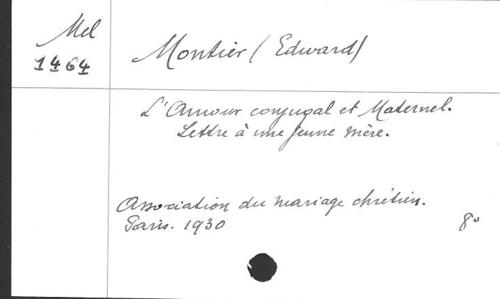 Mel
1464
Montier (Edward)
L'Amour conjugal et Maternel.
Lettre à une jeune mère.
Association du mariage chrétien.
Paris. 1930
8°